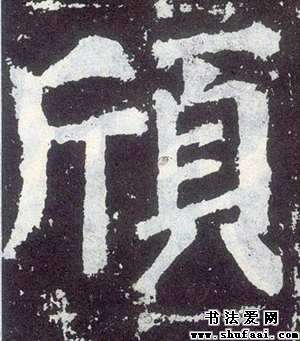 頎
书法爱网
www.shufaai.com